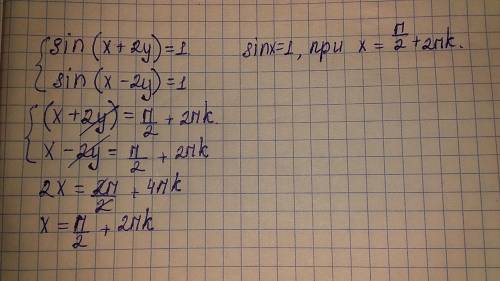 { sin (x + 2y) = 1
sin (x - 2y) = 1
sinx=1, при x = π/2 + 2πk.
{ (x + 2y) = π/2 + 2πk.
x - 2y = π/2 + 2πk
2x = 2π/2 + 4πk
x = π/2 + 2πk